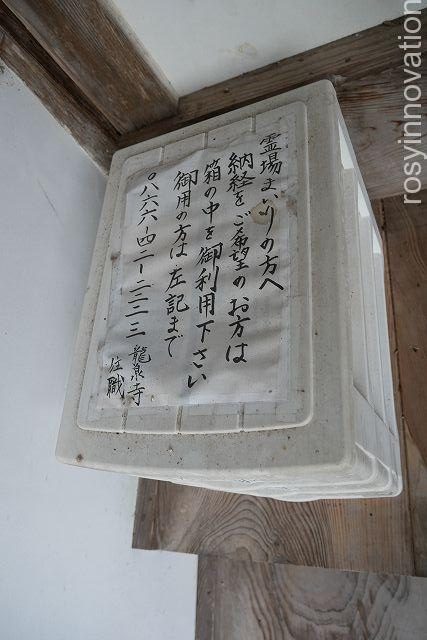 霊場まいりの方へ
納経をご希望のお方は
箱の中を御利用下さい
御用の方は左記まで
〇八六六ー四二ー二二三三
龍泉寺
住職
rosyinnovation